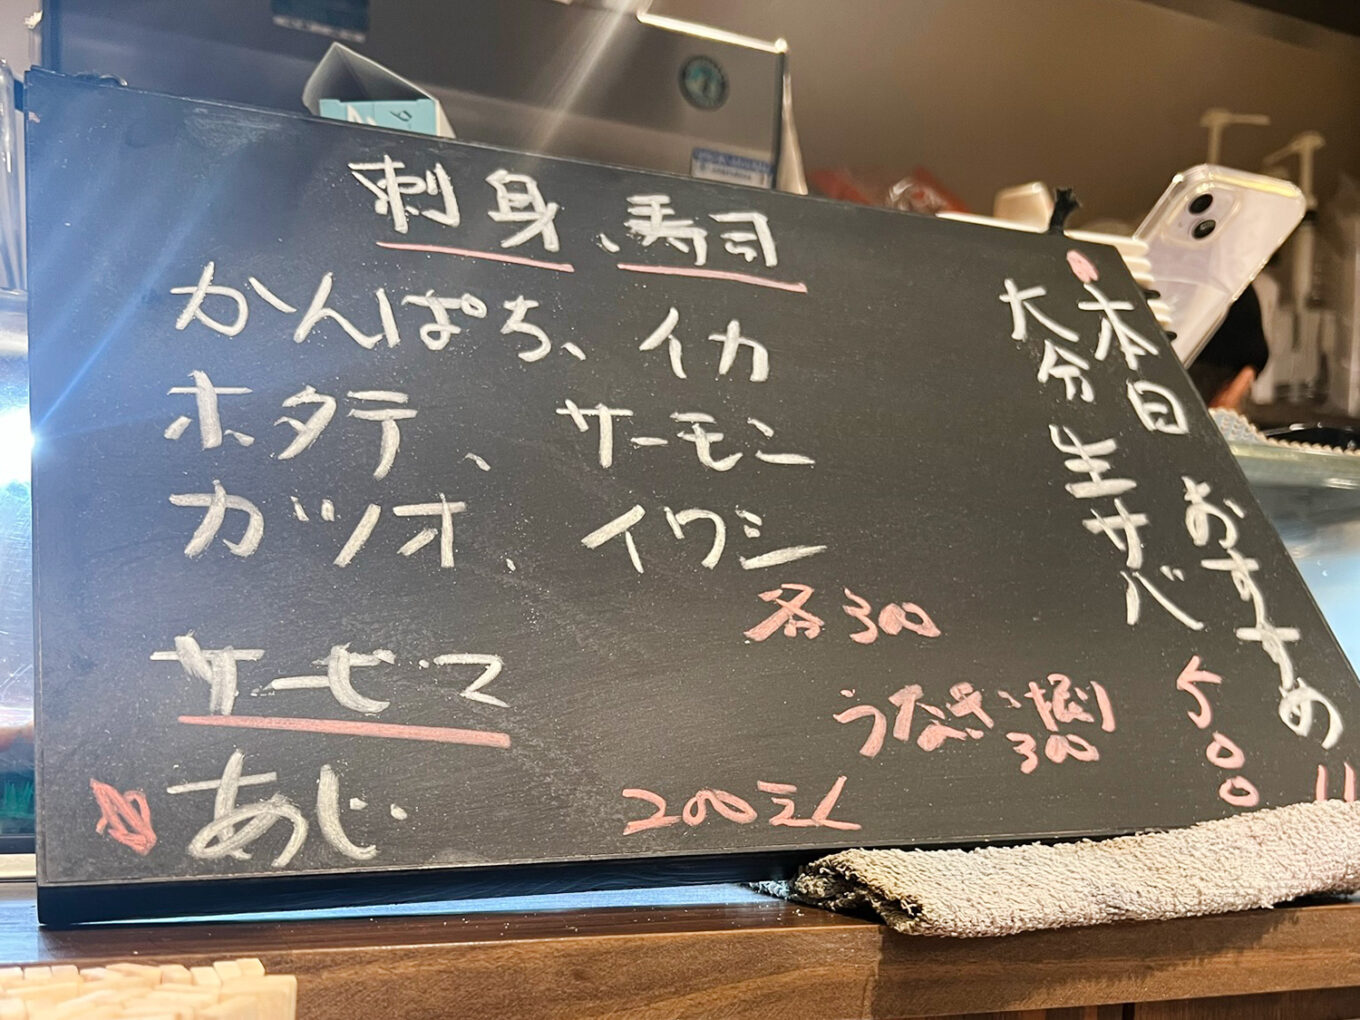 刺身、寿司
かんぱち、イカ
ホタテ、サーモン
カツオ、イワシ
各300
サービス
あじ 200えん
本日おすすめ
大分生サバ
500
300